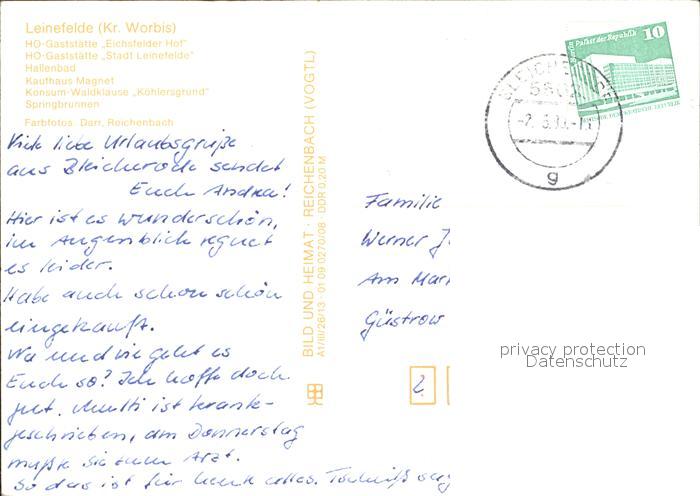 Leinefelde (Kr. Worbis)
HO-Gaststätte „Eichsfelder Hof"
HO-Gaststätte „Stadt Leinefelde"
Hallenbad
Kaufhaus Magnet
Konsum-Waldklause „Köhlersgrund"
Springbrunnen
Farbfotos Darr, Reichenbach
Viele liebe Urlaubsgrüße
aus Bleicherode sendet
Euch Andrea!
Hier ist es wunderschön,
im Augenblick regnet
es leider.
Habe auch schon schön
eingekauft.
Na und wie geht es
Euch so? Ich hoffe doch
gut. Mutti ist krank-
geschrieben, am Donnerstag
mußte sie zum Arzt.
So das ist für heute alles. Tschüß sagt
BILD UND HEIMAT · REICHENBACH (VOGTL)
A1/III/26/13 01 09 0270/08 DDR 0,20 M
Palast der Republik
10
BLEICHERODE
g
Familie
Werner J
Am Mar
Güstrow
2
privacy protection
Datenschutz